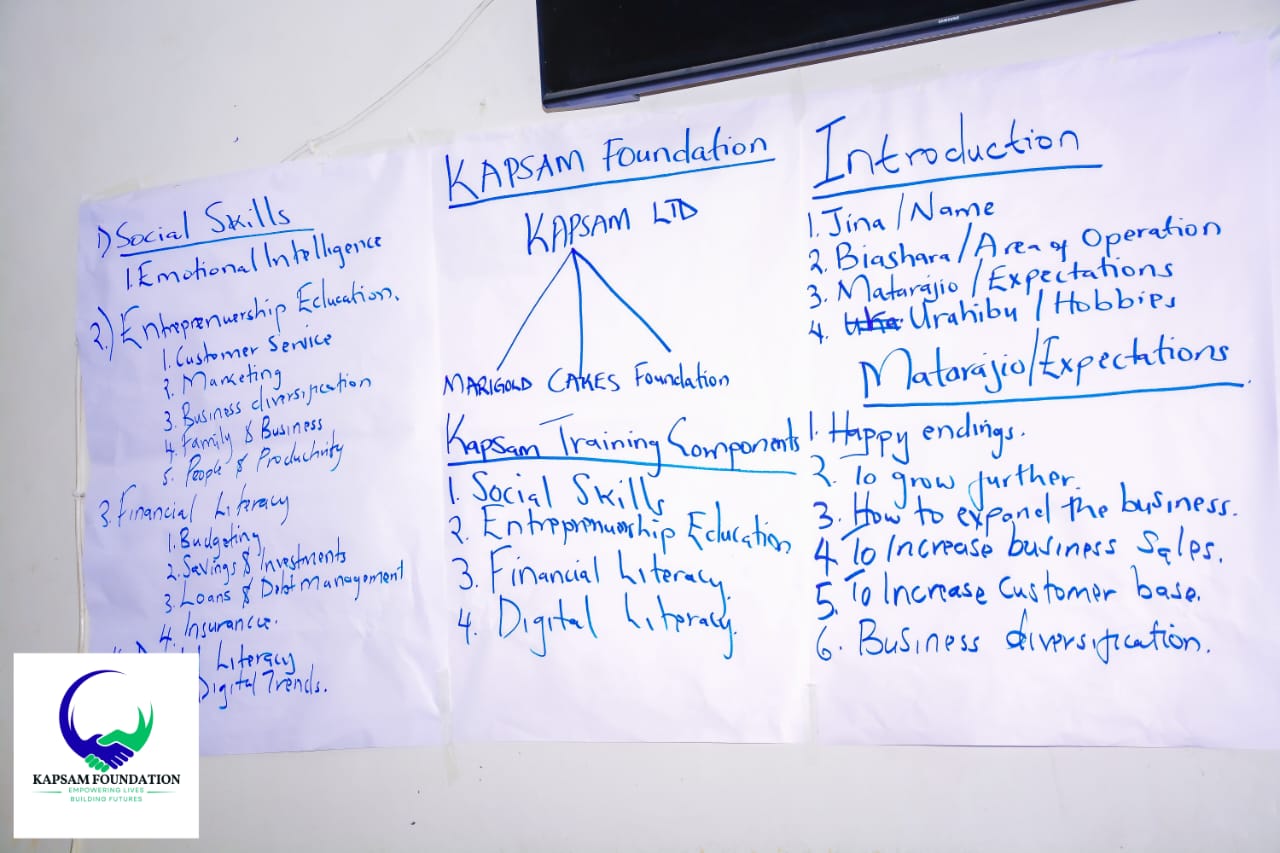 1) Social Skills
1. Emotional Intelligence
2.) Entreprenuership Education.
1. Customer Service
2. Marketing
3. Business diversification
4. Family & Business
5. People & Productivity
3. Financial Literacy
1. Budgeting
2. Savings & Investments
3. Loans & Debt Management
4. Insurance.
Literacy
Digital Trends.
KAPSAM Foundation
KAPSAM LTD
MARIGOLD CAKES Foundation
Kapsam Training Components
1. Social Skills
2. Entreprenuership Education
3. Financial Literacy.
4. Digital Literacy.
Introduction
1. Jina/Name
2. Biashara/Area of Operation
3. Matarajio/Expectations
4. Urahibu/Hobbies
Matarajio/Expectations
1. Happy endings.
2. To grow further.
3. How to expand the business.
4. To Increase business Sales.
5. To Increase Customer base.
6. Business diversification.
SAMSUNG
KAPSAM FOUNDATION
EMPOWERING LIVES
BUILDING FUTURES